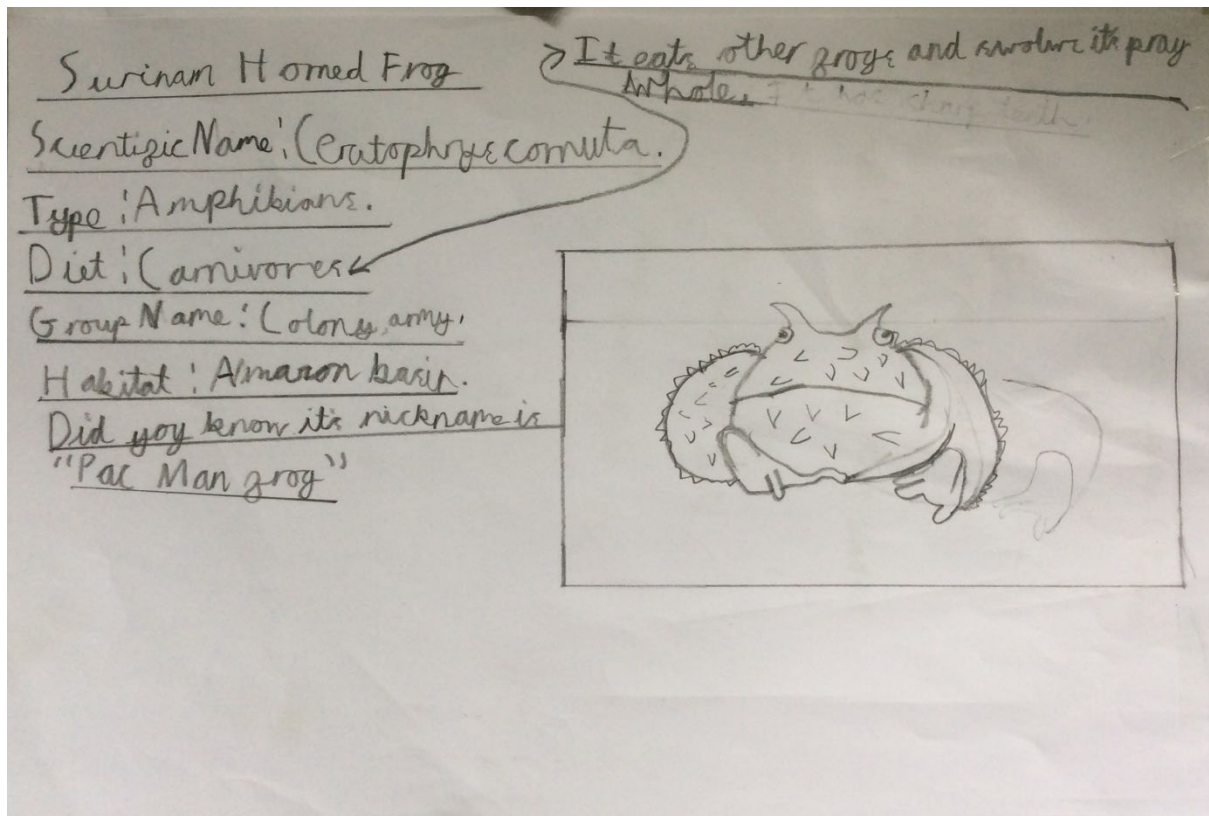 Surinam Horned Frog
Scientific Name: Ceratophrys cornuta.
Type: Amphibians.
Diet: Carnivores
Group Name: Colony, army.
Habitat: Amazon basin.
Did yoy know it's nickname is
"Pac Man frog"
It eats other frogs and swolwe it's pray
whole. It has sharp teeth.